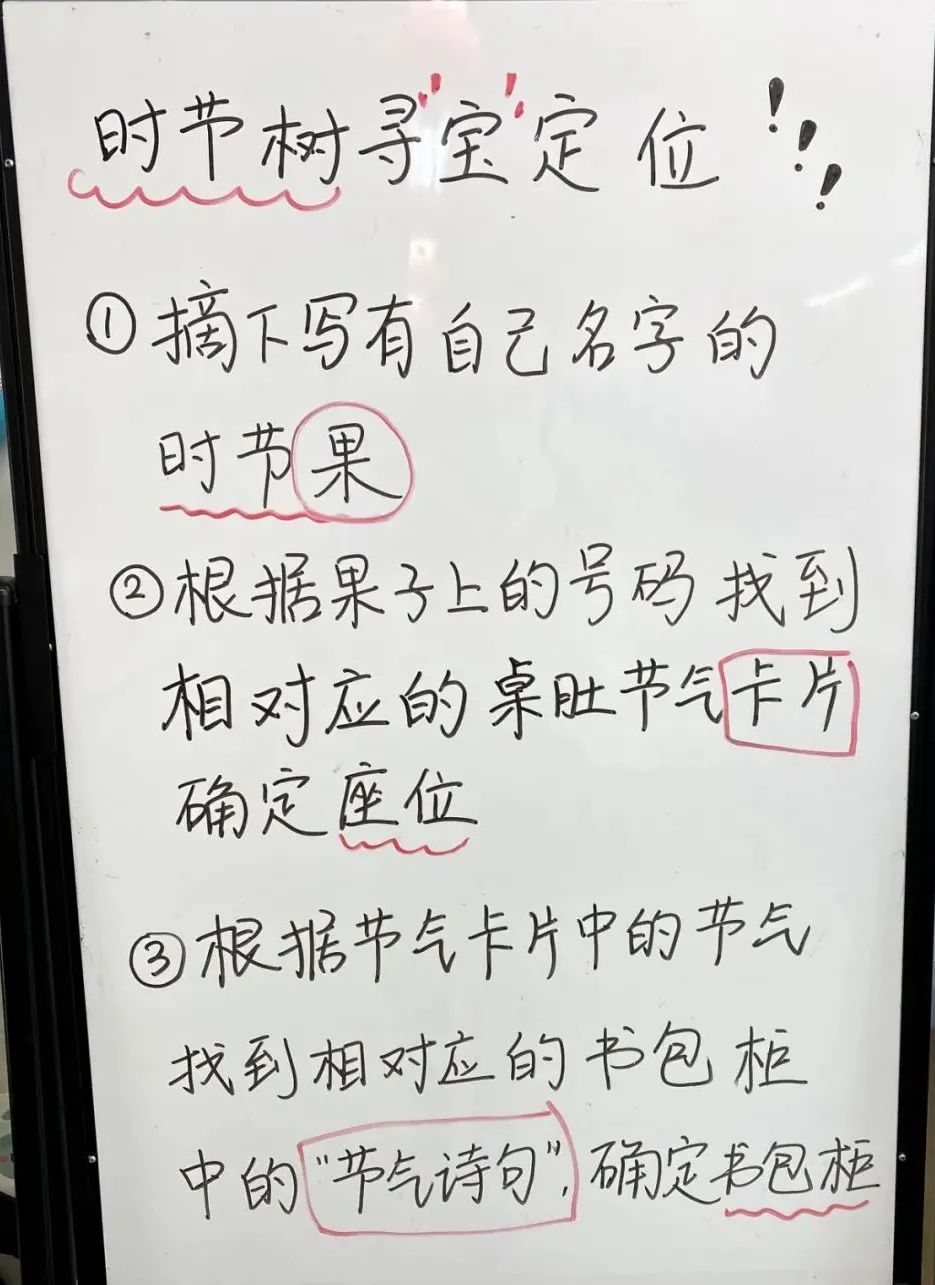 时节树寻宝定位!!!
①摘下写有自己名字的
时节果
②根据果子上的号码找到
相对应的桌肚节气卡片
确定座位
③根据节气卡片中的节气
找到相对应的书包柜
中的“节气诗句”,确定书包柜